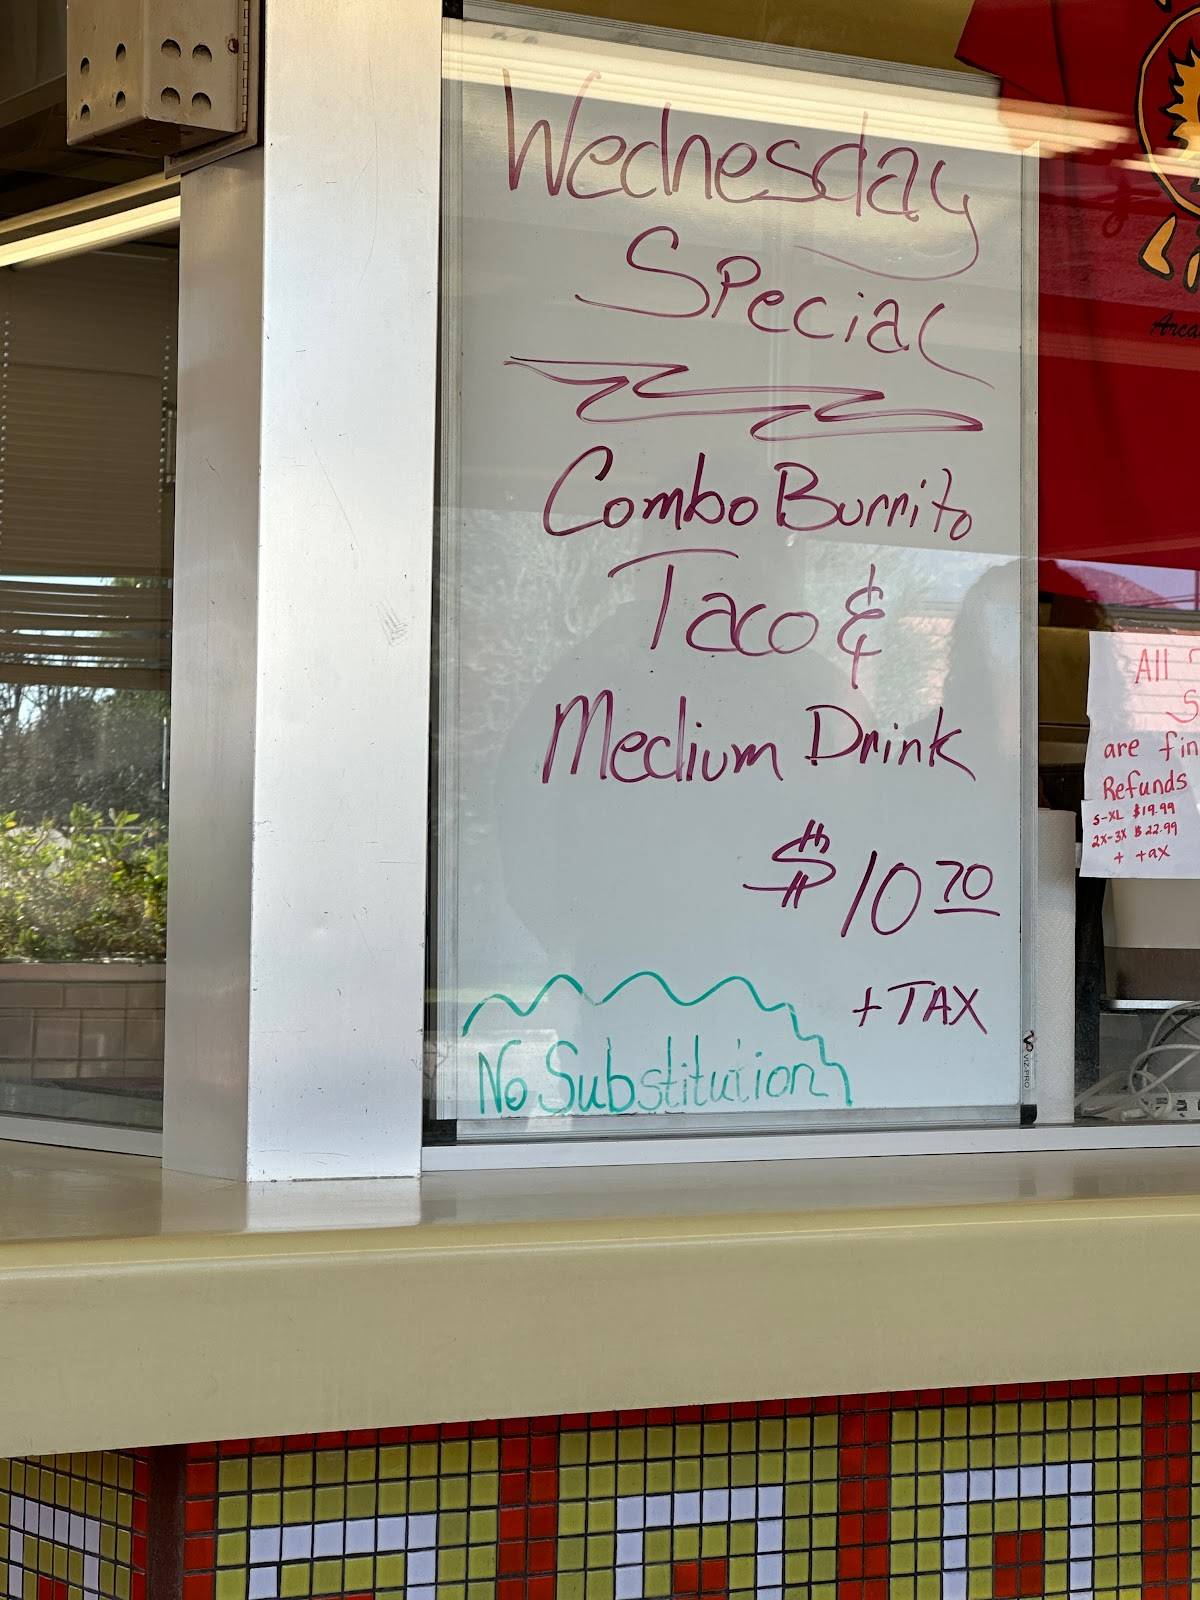 Wednesday
Special
Combo Burrito
Taco &
Medium Drink
$10 70
+ TAX
No Substitution
VIZ-PRO
All
are fin
Refunds
S-XL $19.99
2X-3X $22.99
+ tax